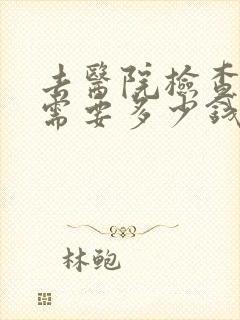 去醫院檢查
需要多少錢
林鲍